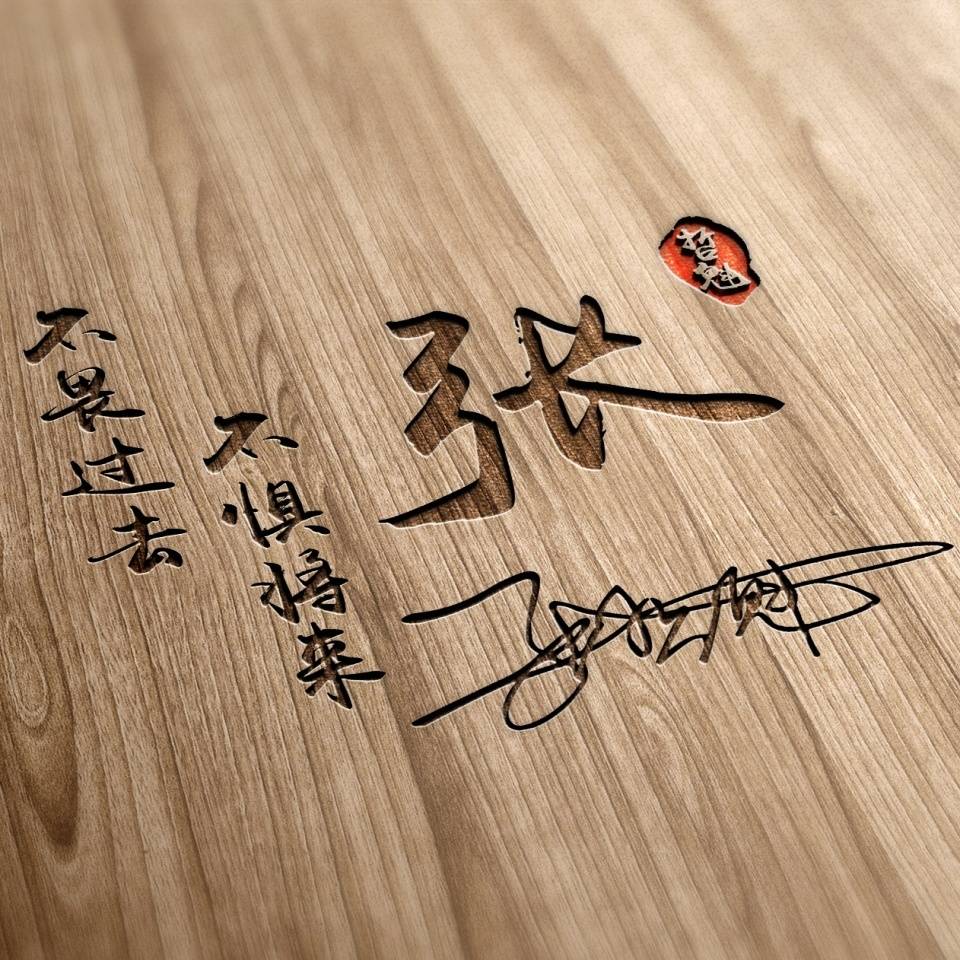 不畏过去
不惧将来
张
哲魁